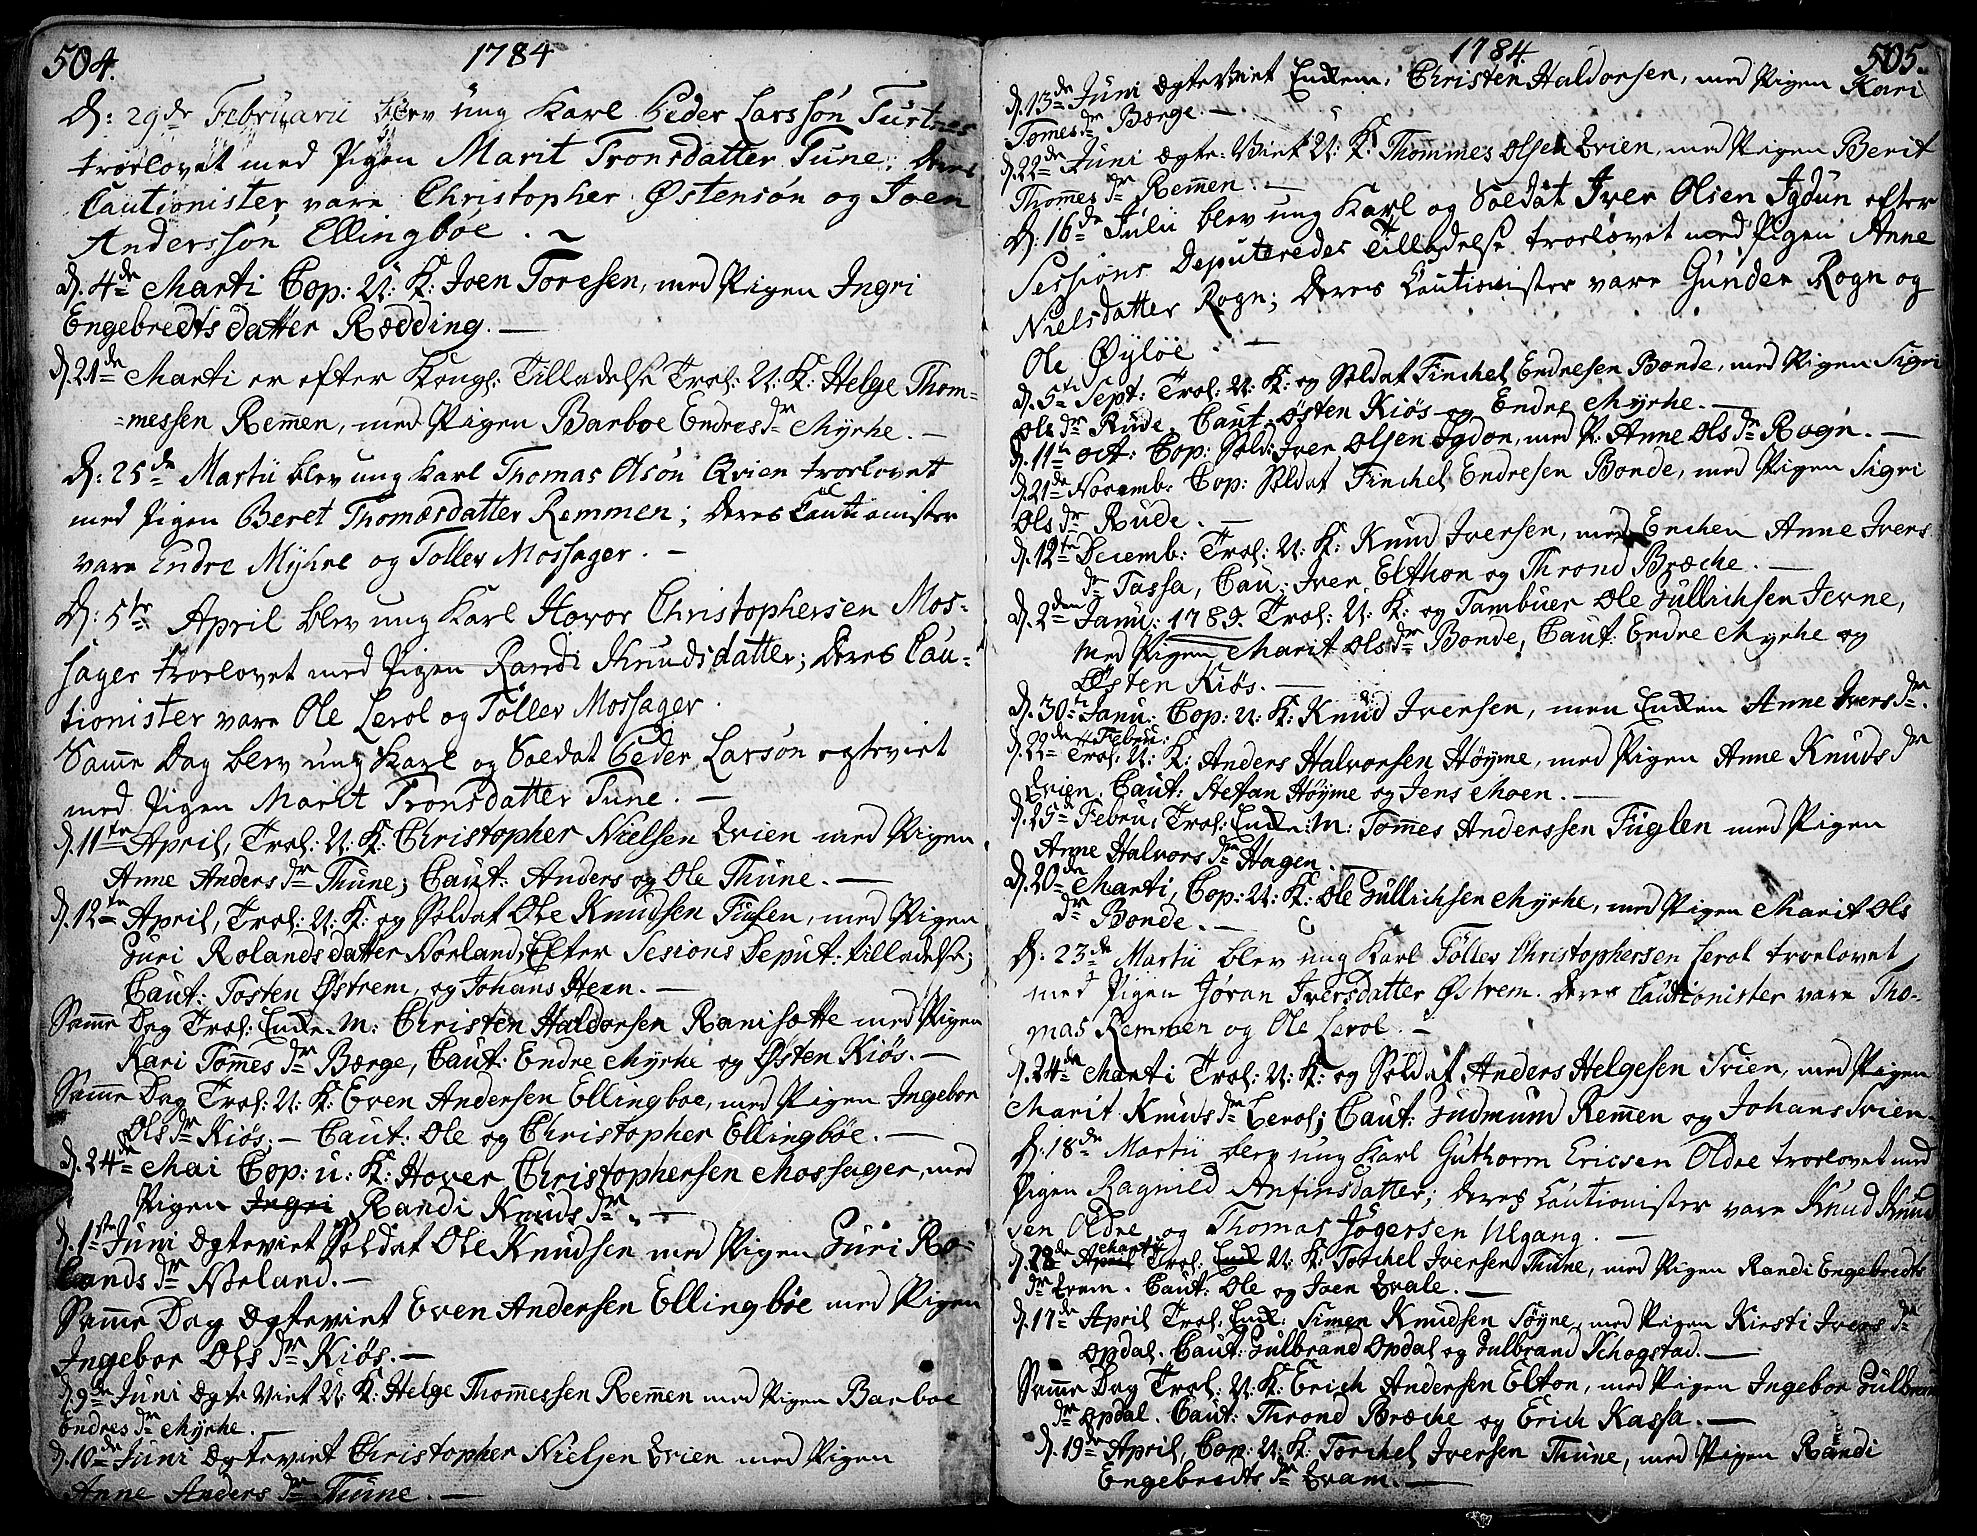 504.
1784
D: 29de Februarii blev ung Karl Peder Larssón Turtnes
trorlovet med Pigen Marit Tronsdatter Tune: deres
Cautionister vare Christopher Østensón og Joen
Anderssón Ellingbóe. ~
D. 4de Marti Cop: U: K: Joen Toresen, med Pigen Ingri
Engebredtsdatter Rødding. —
D. 21de Marti er efter Kongl: Tilladelse Trol: U: K: Helge Thom-
=messen Rem̃en, med Pigen Barboe Endres dr Myrhe. —
D: 25de Martii blev ung Karl Thomas Olsón Qvien trorlovet
med Pigen Beret Thomæsdatter Remmen; deres Cautionister
vare Endre Myhre og Tollev Mossager. —
D: 5te April blev ung Karl Hovor Christophersen Mos-
sager trorlovet med Pigen Randi Knudsdatter; deres Cau-
tionister vare Ole Lerol og Tóllev Mossager.
Sam̃e Dag blev ung Karl og Soldat Peder Larsón egtevict
med Pigen Marit Tronsdatter Tune. —
D. 11te April, Trol: U: K: Christopher Nielsen Qvien med Pigen
Anne Anders dr Thune; Caut: Anders og Ole Thune. —
D. 12te April, Trol: U: K: og Soldat Ole Knudsen Fusen, med Pigen
Guri Rolandsdatter Norland, Efter Sesions Deput: tilladelse;
Caut: Tosten Østrem, og Johans Hern. —
Sam̃e Dag Trol: Enke-M: Christen Haldorsen Ranisotte med Pigen
Kari Tom̃es dr Børge, Caut: Endre Myrhe og Østen Kiós. —
Sam̃e Dag Trol: U: K: Even Andersen Ellingboe, med Pigen Ingebor
Ols dr Kiós; — Caut: Ole og Christopher Ellingbóe. —
D. 24de Mai Cop: u: K: Hover Christophersen Mossager, med
Pigen Ingri Randi Knuds dr. —
D. 1ste Juni Ægtevict Soldat Ole Knudsen med Pigen Guri Ro-
lands dr Norland. —
Sam̃e Dag Ægtevict Even Andersen Ellingbóe med Pigen
Ingebor Ols dr Kiós. —
D. 9de Juni Ægte Viet U: K: Helge Thom̃essen Rem̃en med Pigen Barboe
Endres dr Myrhe. —
D. 10de Juni Ægteviet Christopher Nielsen Qvien med Pigen
Anne Anders dr Thune. —
1784.
505.
D. 13de Juni Ægte Viet Enkem: Christen Haldorsen, med Pigen Kari
Tomes dr Børge. —
D. 22de Juni Ægte: Viet U: K: Thommes Olsen Qvien, med Pigen Berit
Thom̃es dr Rem̃en. —
D: 16de Julii blev ung Karl og Soldat Iver Olsen Igdun efter
Sessions Deputeredes Tilladelse trorlovet med Pigen Anne
Nielsdatter Rogn; Deres Cautionister vare Gunder Rogn og
Ole Øylóe. —
D. 5te Sept: Trol: U: K: og Soldat Finchel Endresen Bonde, med Pigen Sigri
Ols dr Rude, Caut: Østen Kiós og Endre Myrhe. —
D. 11te Oct: Cop: Sold: Iver Olsen Igdon, med P: Anne Ols dr Rogn. —
D. 21de Novemb: Cop: Soldat Finchel Endresen Bonde, med Pigen Sigri
Ols dr Rude. —
D. 12te Decemb: Trol: U: K: Knud Iversen, med Enchen Anne Ivers
dr Tassa, Cau: Iver Elthon og Thrond Bræche. —
D. 2den Janu: 1785. Trol: U: K: og Tambuer Ole Gullrichsen Ierne,
med Pigen Marit Ols dr Bonde, Caut: Endre Myrhe og
Østen Kiós. —
D. 30te Janu: Cop: u: K: Knud Iversen, men Enken Anne Ivers dr.
D. 22de Febru: Trol: U: K: Anders Halvorsen Hóyme, med Pigen Anne Knuds dr
Qvien, Caut: Stefan Hóyme og Jens Moen. —
D. 25de Febru, Trol: Enke: M: Tom̃es Anderssen Fuglen med Pigen
Anne Halvors dr Hagen.
D. 20de Marti, Cop: U: K: Ole Gullrichsen Myrhe, med Pigen Marit Ols
dr Bonde. —
D: 23de Martii blev ung Karl Tólles Christophersen Lerol trorlovet
med Pigen Jóran Iversdatter Østrem. Deres Cautionister vare Tho-
mas Remmen og Ole Lerol. —
D. 24de Marti Trol: U: K: og Soldat Anders Helgesen Svien, med Pigen
Marit Knuds dr Lerol; Caut: Gudmund Rem̃en og Johans Svien.
D: 18de Martii blev ung Karl Guthorm Ericsen Oldre trorlovet med
Pigen Ragnild Anfinsdatter; deres Cautionister vare Knud Knud
sen Oldre og Thomas Jógersen Ulgang. —
D. 28de April Martii Trol: Enk U: K: Torchel Iversen Thune, med Pigen Randi Engebredts
dr Qvam. Caut: Ole og Joen Qvale. —
D. 17de April Trol: Enk: Simen Knudsen Sóyne, med Pigen Kirsti Ivers dr
Opdal. Caut: Gulbrand Opdal og Gulbrand Schogstad. —
Sam̃e Dag Trol: U: K: Erich Andersen Elton, med Pigen Ingebor Gulbran
dr Opdal. Caut: Thrond Bræche og Erich Kassa. —
D. 19de April, Cop: U: K: Torchel Iversen Thune, med Pigen Randi
Engebredts dr Qvam. —